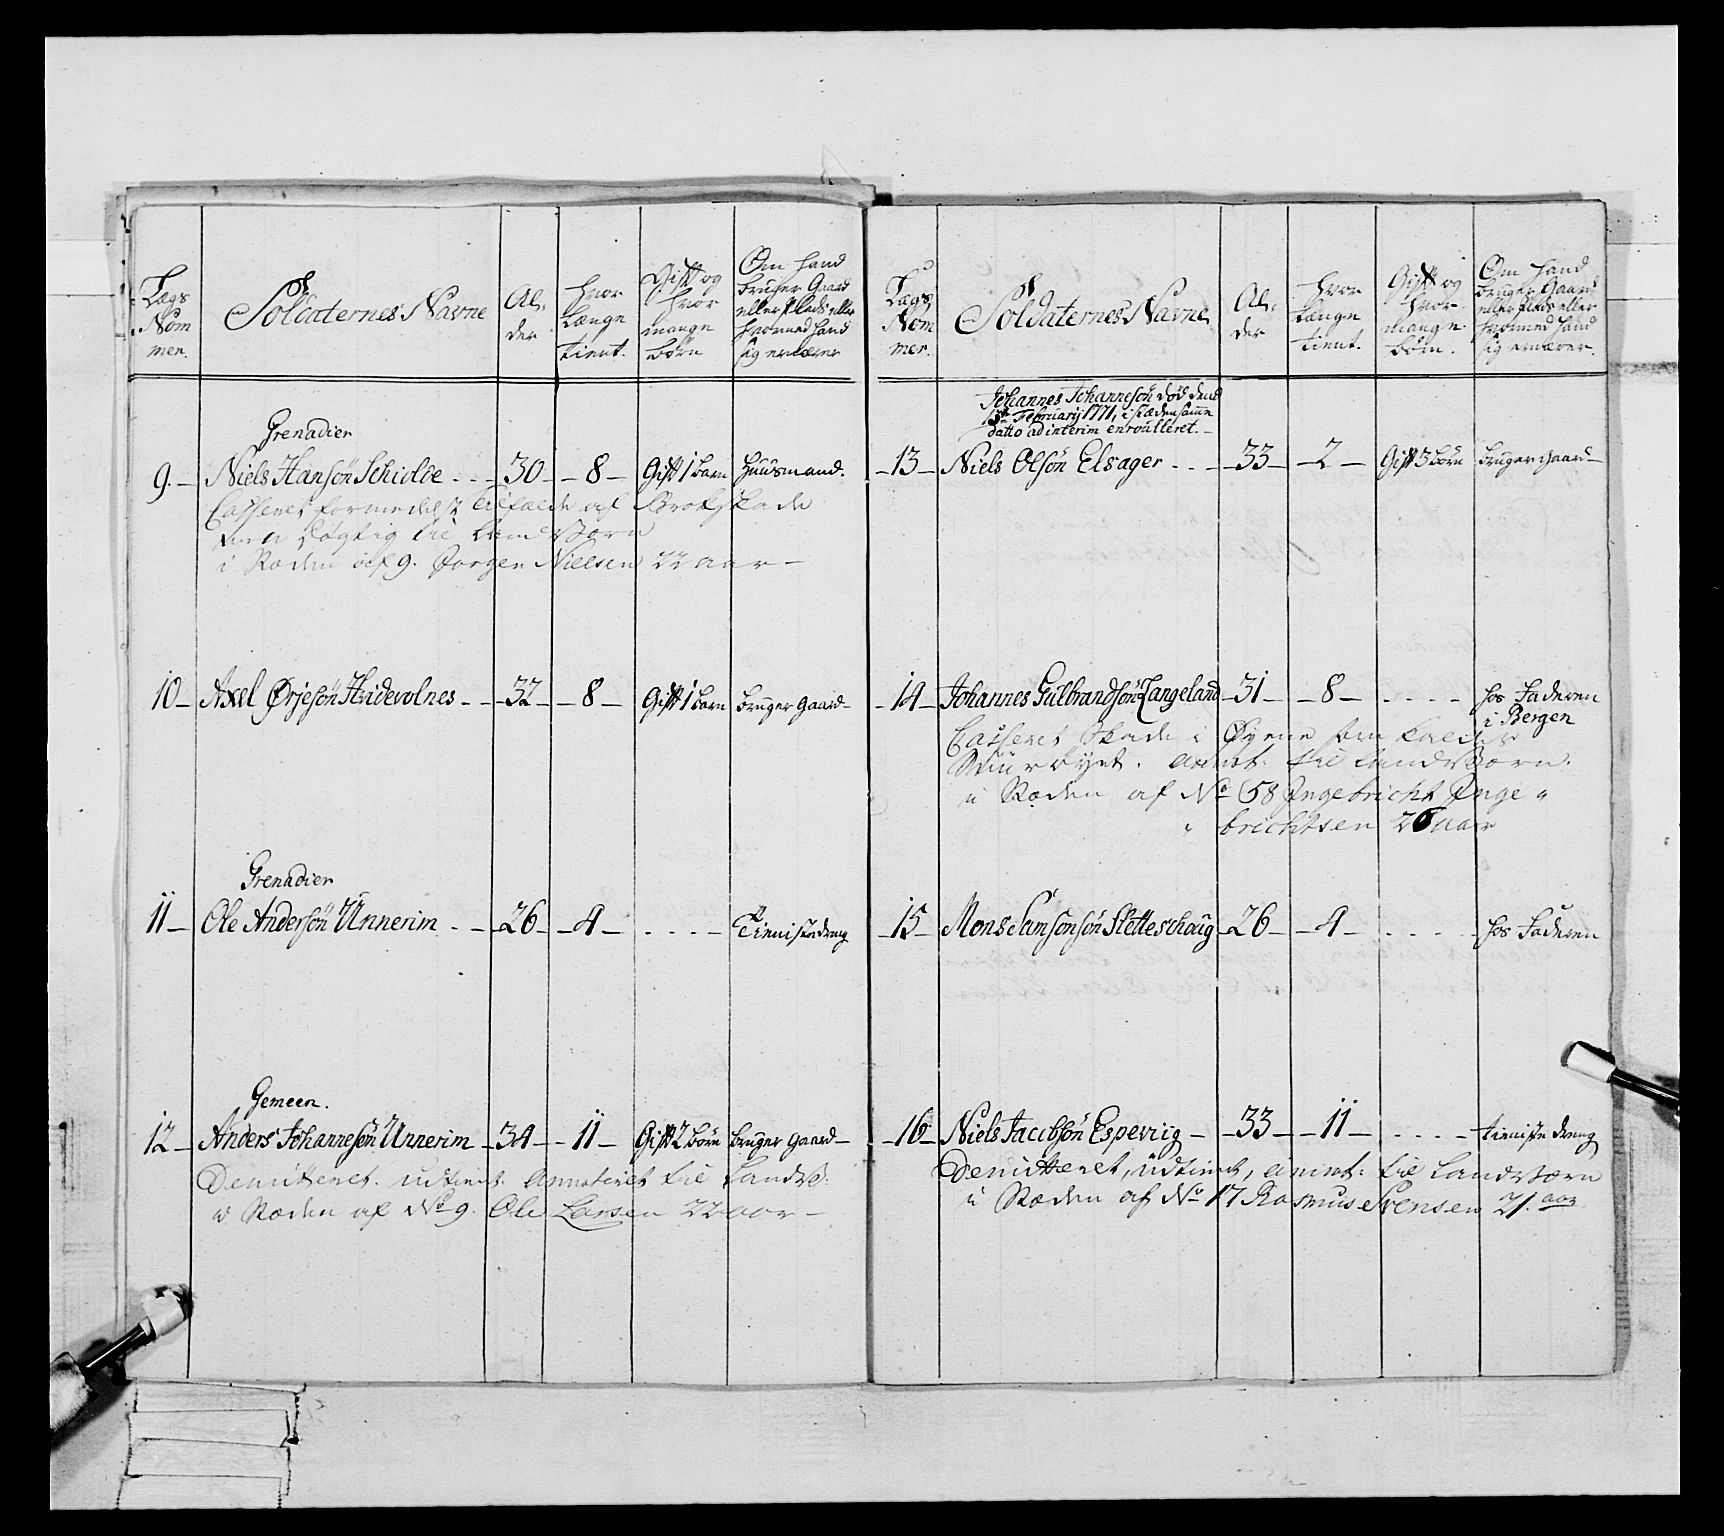 Lægs Nom mer.
Soldaternes Navne
Al, der
Hvor længe tient.
Gift og hvor mange börn
Om hand bruger Gaard eller Plads eller hvormed hand sig ernærer
Grenadier
9. — Niels Hansön Schiolde - - - 30 — 8 — Gift 1 barn Huusmand.
Casseret formedelst tilfælde af Brokskade
döygtig til Land Værn
i Stæden af 9. Jørgen Nielsen 22 aar —
10 — Axel Ørjesön Hvidevolnes - - - 32 — 8 — Gift 1 barn bruger Gaard
Grenadier
11 — Ole Andersön Unnerim - - - 26 — 4 — - - - - Tienistedreng
Gemeen.
12 — Anders Johannesön Unnerim — 34 — 11 — Gift 2 börn bruger Gaard —
Demitteret. udtient. Annoteret til Landv:
i Stæden af No 9. Ole Larsen 22 aar —
Lægs Nom mer.
Soldaternes Navne
Al, der
Hvor længe tient.
Gift og hvor mange börn.
Om hand bruger Gaard eller Plads eller hvormed hand sig ernærer.
Johannes Johannesön död dend
Februarij 1771, i stæden samme
datto ad interim enroulleret. —
— 13 — Niels Olsön Elsager - - - 33 — 2 — Gift 3 börn bruger Gaard —
— 14 — Johannes Gulbrandsön Langeland — 31 — 8 — - - - - hos Faderen
i Bergen
Casseret Skade i Øyene som kaldes
Suurøyet. annot: til Landværn.
i Stæden af No 58 Ingebricht Inge "
" brichtsen 26 aar
— 15 — Mons Samsonsön Sletteschoug — 26 — 4 — - - - - hos Faderen
— 16 — Niels Jacobsön Espeviig — 33 — 11 — - - - - tieniste dreng
Demitteret, udtient, annot: til Landværn
i Stæden af No 17 Rasmus Svensen 21. aar